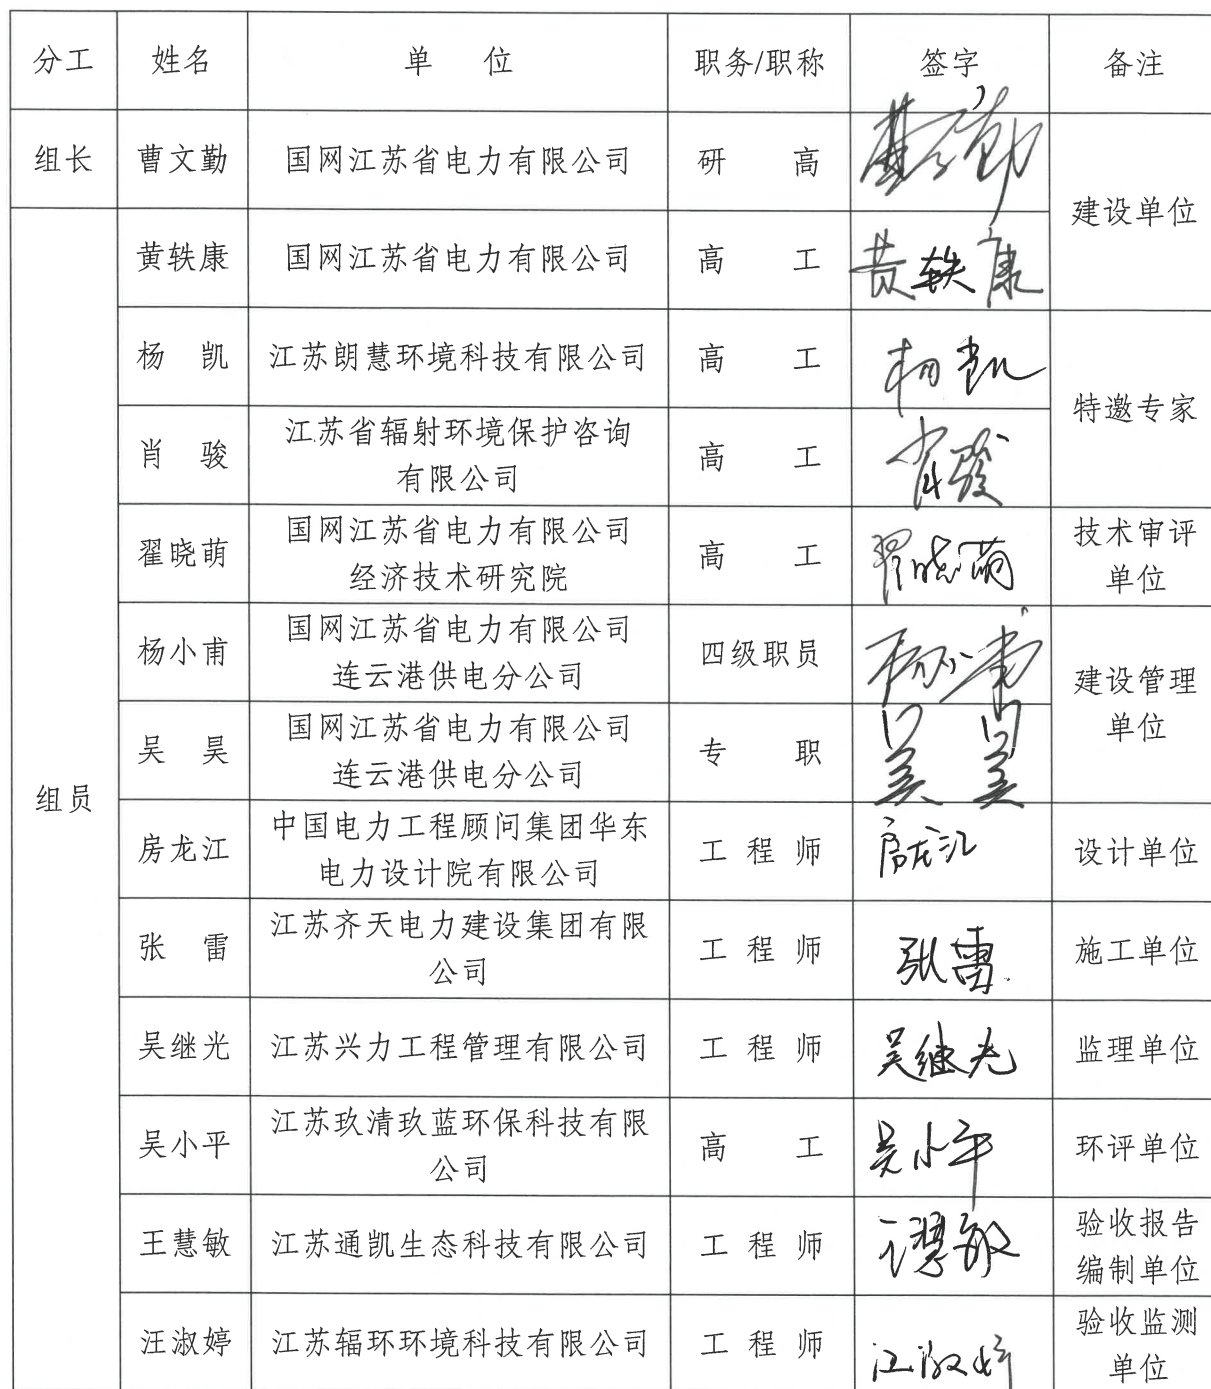 分工 姓名 单 位 职务/职称 签字 备注
组长 曹文勤 国网江苏省电力有限公司 研 高 曹文勤
建设单位
黄轶康 国网江苏省电力有限公司 高 工 黄轶康
杨 凯 江苏朗慧环境科技有限公司 高 工 杨凯
特邀专家
肖 骏 江苏省辐射环境保护咨询
有限公司 高 工 肖骏
翟晓萌 国网江苏省电力有限公司
经济技术研究院 高 工 翟晓萌 技术审评
单位
杨小甫 国网江苏省电力有限公司
连云港供电分公司 四级职员 杨小甫
建设管理
单位
吴 昊 国网江苏省电力有限公司
连云港供电分公司 专 职 吴昊
组员
房龙江 中国电力工程顾问集团华东
电力设计院有限公司 工 程 师 房龙江 设计单位
张 雷 江苏齐天电力建设集团有限
公司 工 程 师 张雷 施工单位
吴继光 江苏兴力工程管理有限公司 工 程 师 吴继光 监理单位
吴小平 江苏玖清玖蓝环保科技有限
公司 高 工 吴小平 环评单位
王慧敏 江苏通凯生态科技有限公司 工 程 师 王慧敏 验收报告
编制单位
汪淑婷 江苏辐环环境科技有限公司 工 程 师 汪淑婷 验收监测
单位